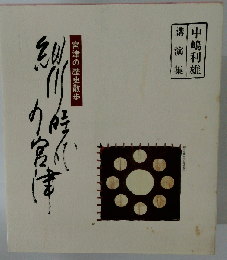 中嶋利雄
講演集
宮津の歴史散歩
細川時代
の宮津